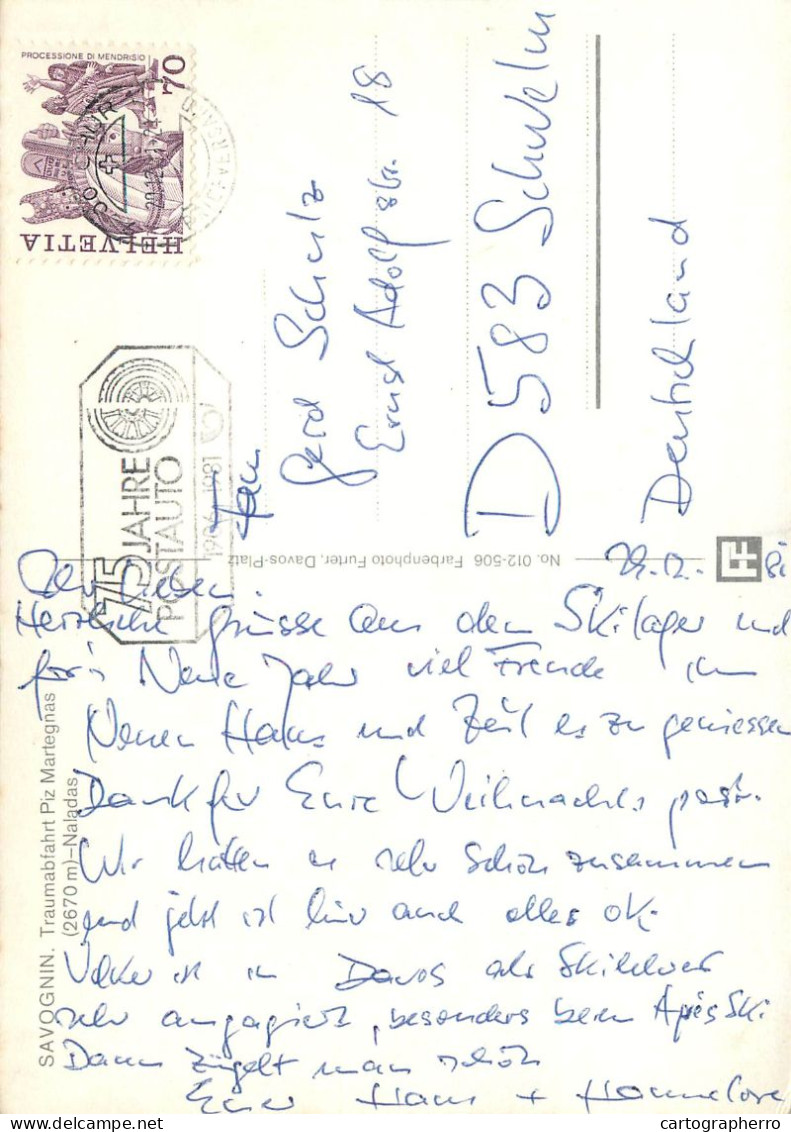 PROCESSIONE DI MENDRISIO
70
HELVETIA
CHUR 1
ANNAHME
75 JAHRE
POSTAUTO
1906-1981
Fam
Gerd Schulz
Ernst Adolf Str. 18
D 583 Schwelm
Deutschland
No. 012-506 Farbenphoto Furter, Davos-Platz
SAVOGNIN. Traumabfahrt Piz Martegnas
(2670 m)–Naladas
29.12.81
Ihr Lieben.
Herzliche Grüsse aus dem Skilager und
für's Neue Jahr viel Freude im
Neuen Haus und Zeit es zu geniessen
Dank für Eure Weihnachtspost.
Wir hatten es sehr schön zusammen
und jetzt ist hier auch alles ok.
ist in Davos als Skilehrer
sehr angagiert, besonders beim Après Ski
Dann zügelt man schön
Euer Hans + Hannelore
cartographerro